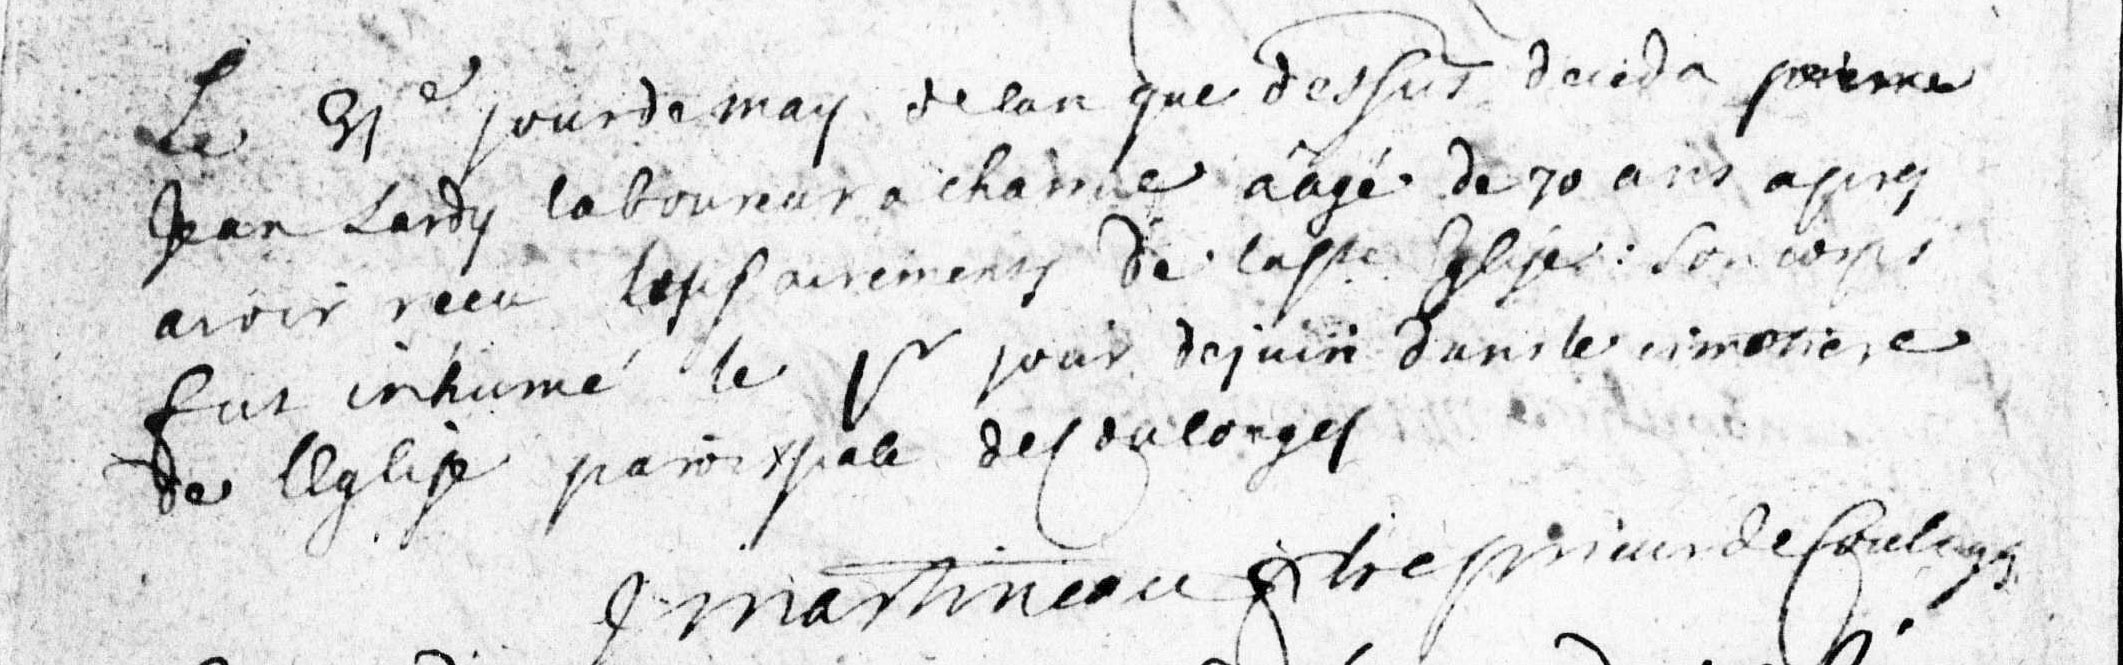 Le 31e jour de may de lan que dessus deceda pierre
Jean Lardy laboureur a charrue âagé de 70 ans apres
avoir receu les sacrements de la ste Eglise : Son corps
fut inhumé le pr jour de juin dans le cimetiere
de lEglise paroixpale de Coulonges
J martineau ptre prieur de Coulonges